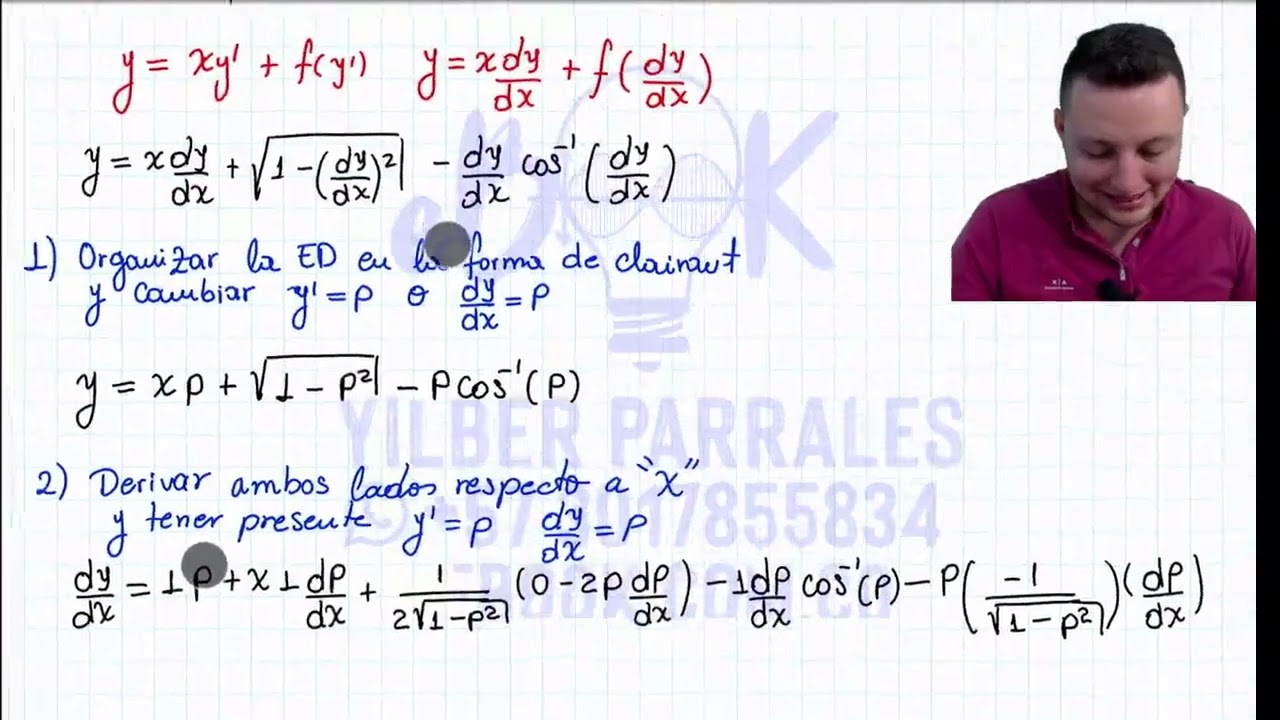 y = xy' + f(y')   y = x dy/dx + f(dy/dx)
y = x dy/dx + √(1 - (dy/dx)²) - dy/dx cos⁻¹(dy/dx)
1) Organizar la ED en la forma de clairaut
y cambiar y' = P o dy/dx = P
y = xp + √(1 - P²) - P cos⁻¹(P)
YILBER PARRALES
2) Derivar ambos lados respecto a "x"
y tener presente y' = p   dy/dx = P
dy/dx = 1p + x 1 dp/dx + 1/(2√(1-p²)) (0 - 2p dp/dx) - 1 dp/dx cos⁻¹(p) - P(-1/√(1-p²))(dp/dx)